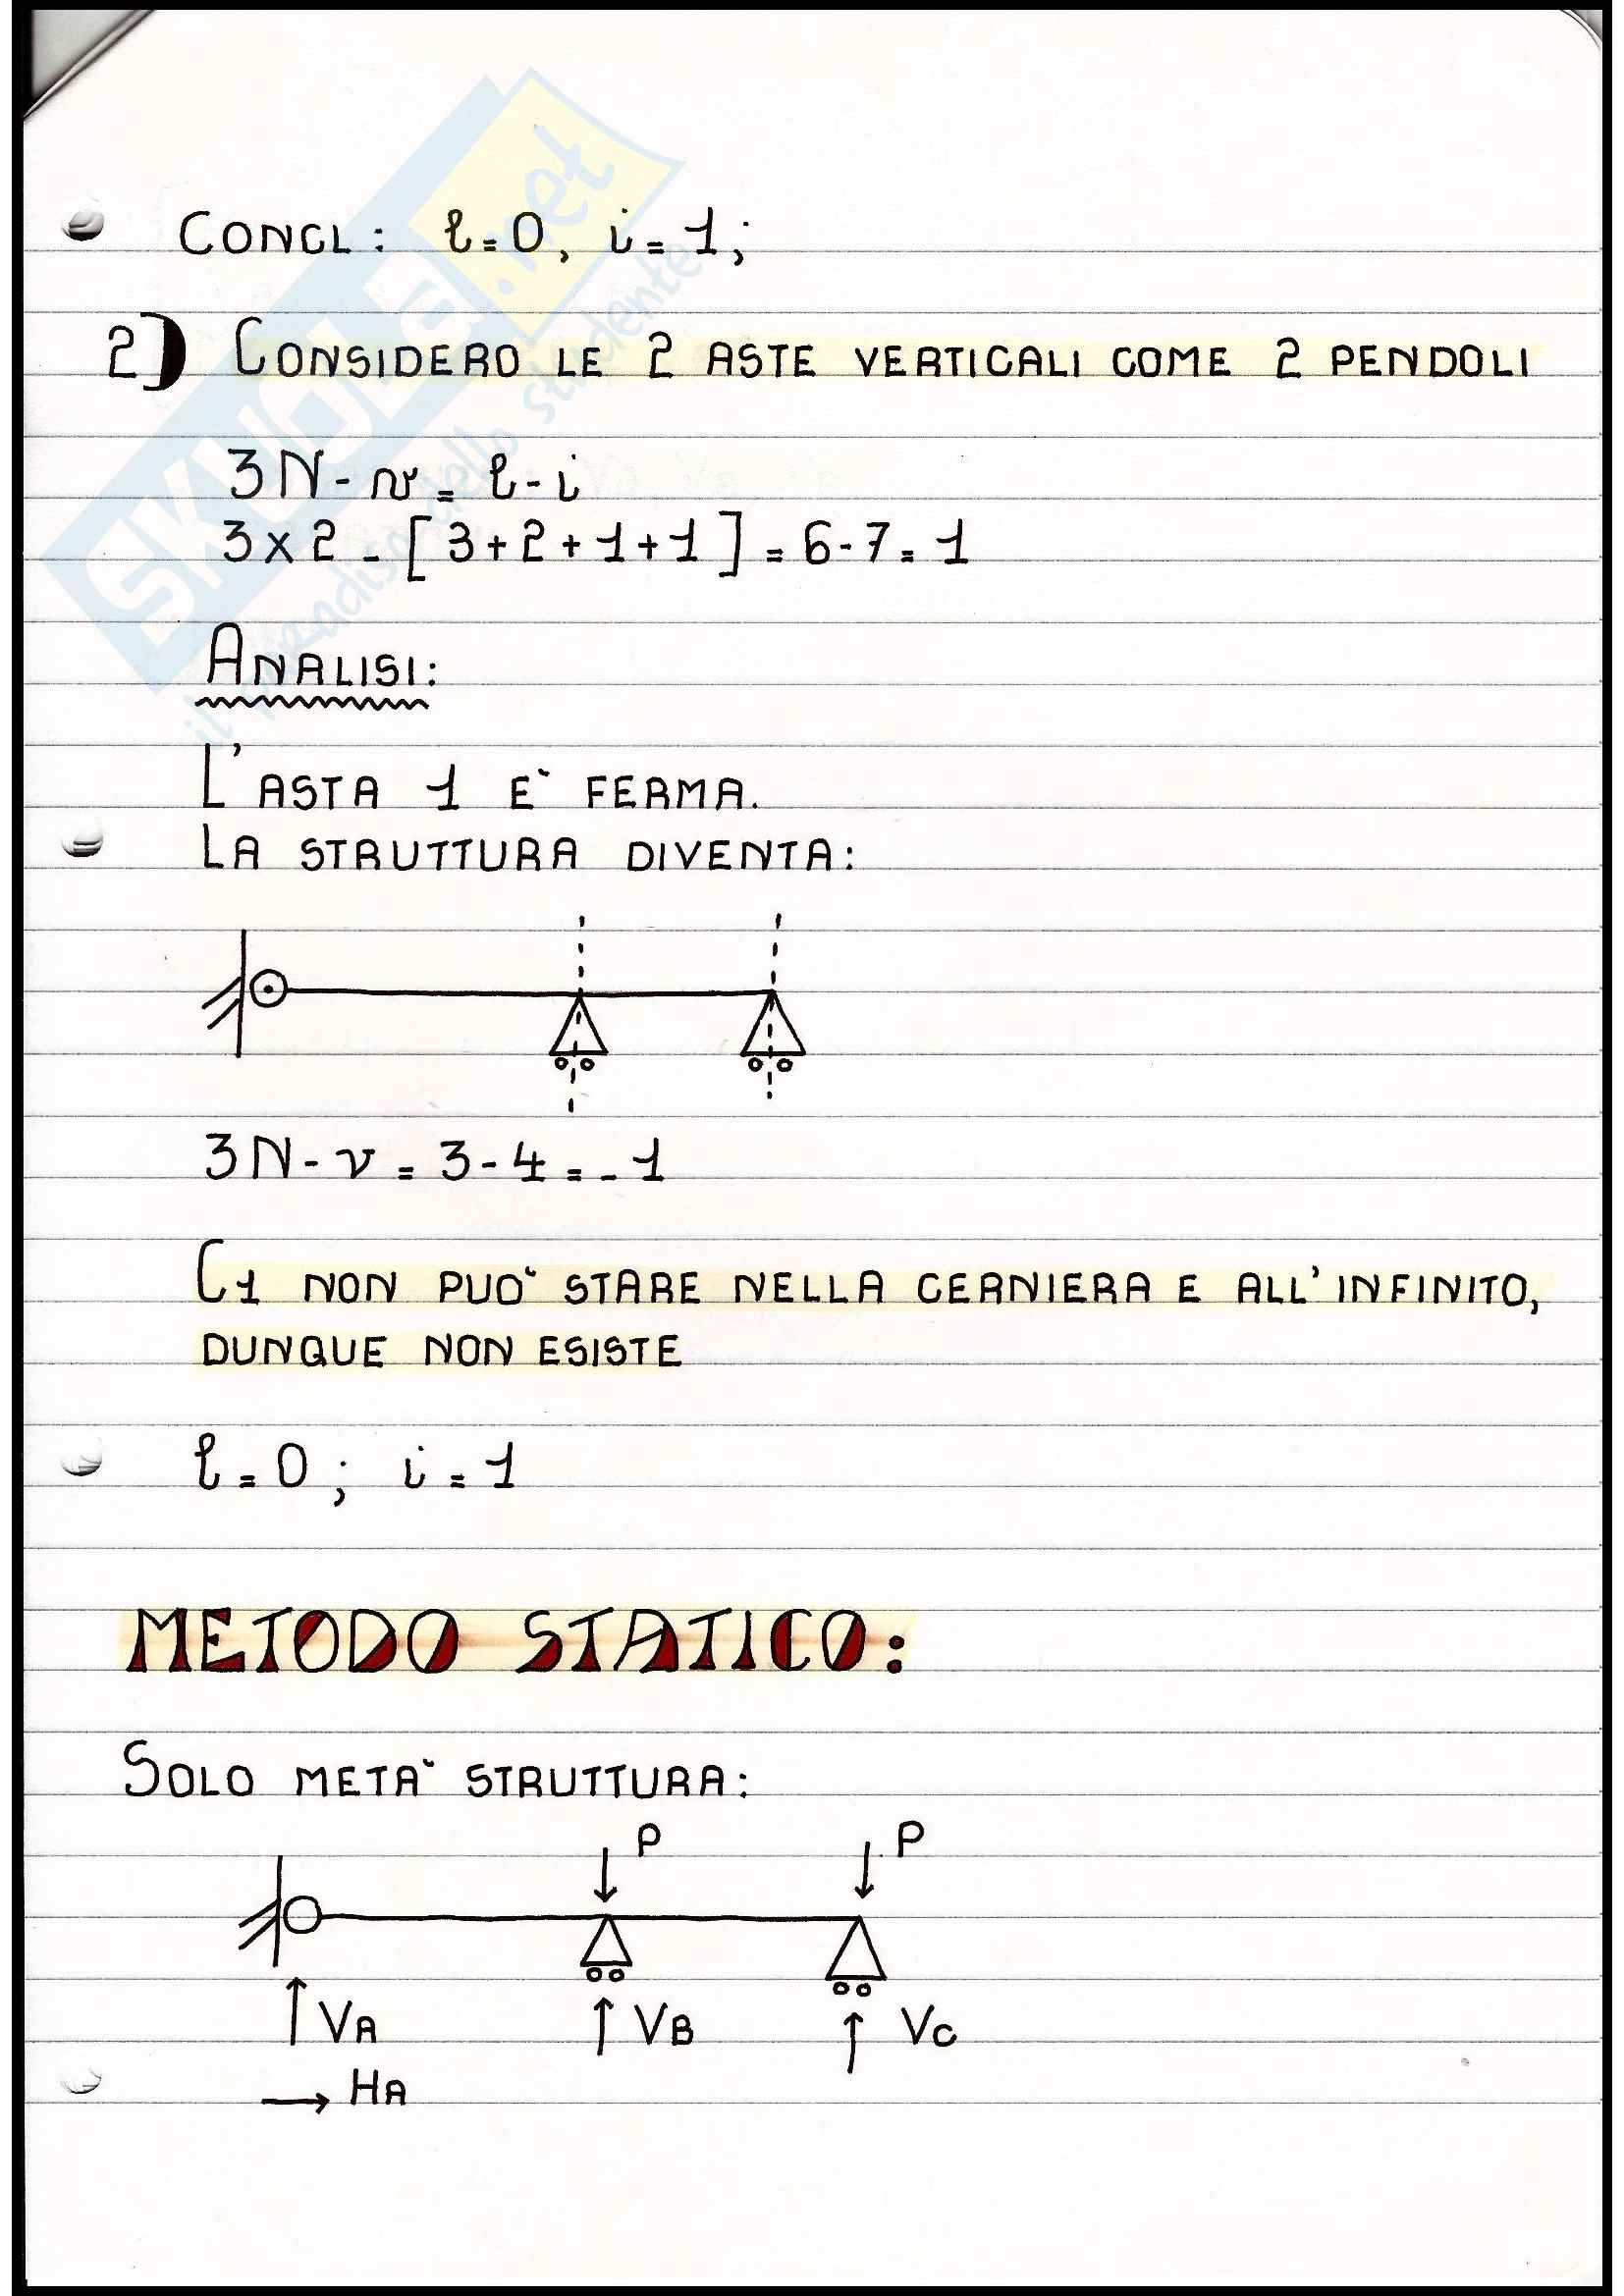 CONCL: l=0, i=1;
2) CONSIDERO LE 2 ASTE VERTICALI COME 2 PENDOLI
3N-v=l-i
3x2-[3+2+1+1]=6-7=1
ANALISI:
L'ASTA 1 E` FERMA.
LA STRUTTURA DIVENTA:
3N-v=3-4=-1
C1 NON PUO` STARE NELLA CERNIERA E ALL'INFINITO,
DUNQUE NON ESISTE
l=0; i=1
METODO STATICO:
SOLO META` STRUTTURA:
P P
VA VB VC
HA
SKUOLA.net
il paradiso dello studente